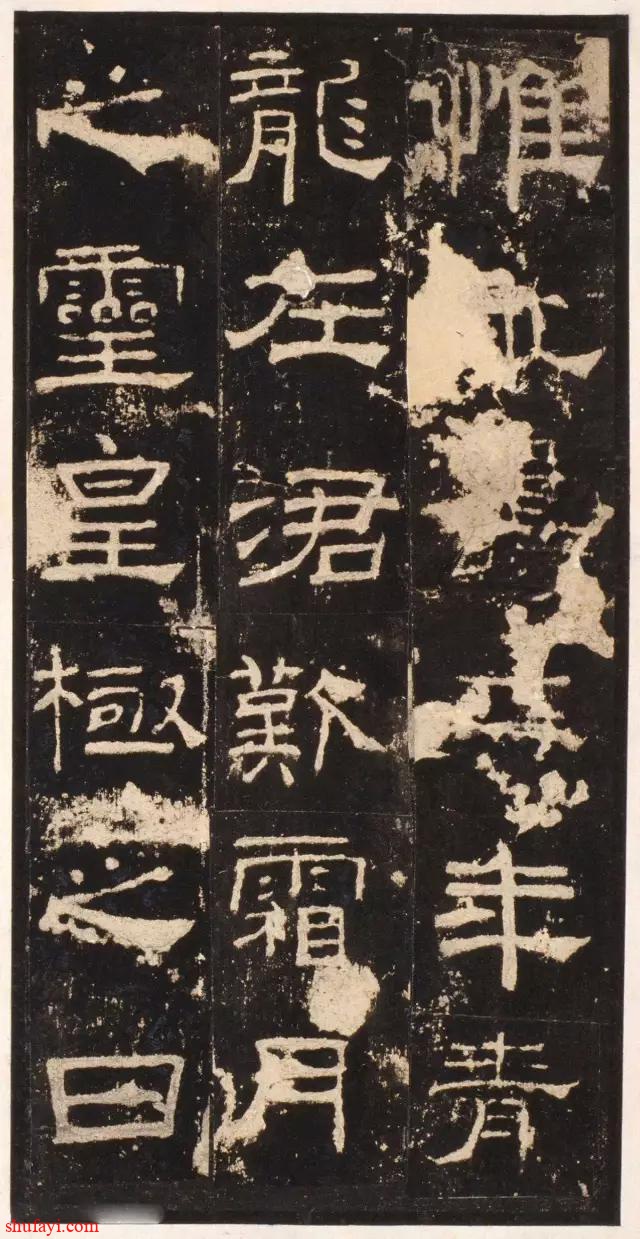 惟年青
龍在涒歎霜月
之靈皇極之日
shufayi.com